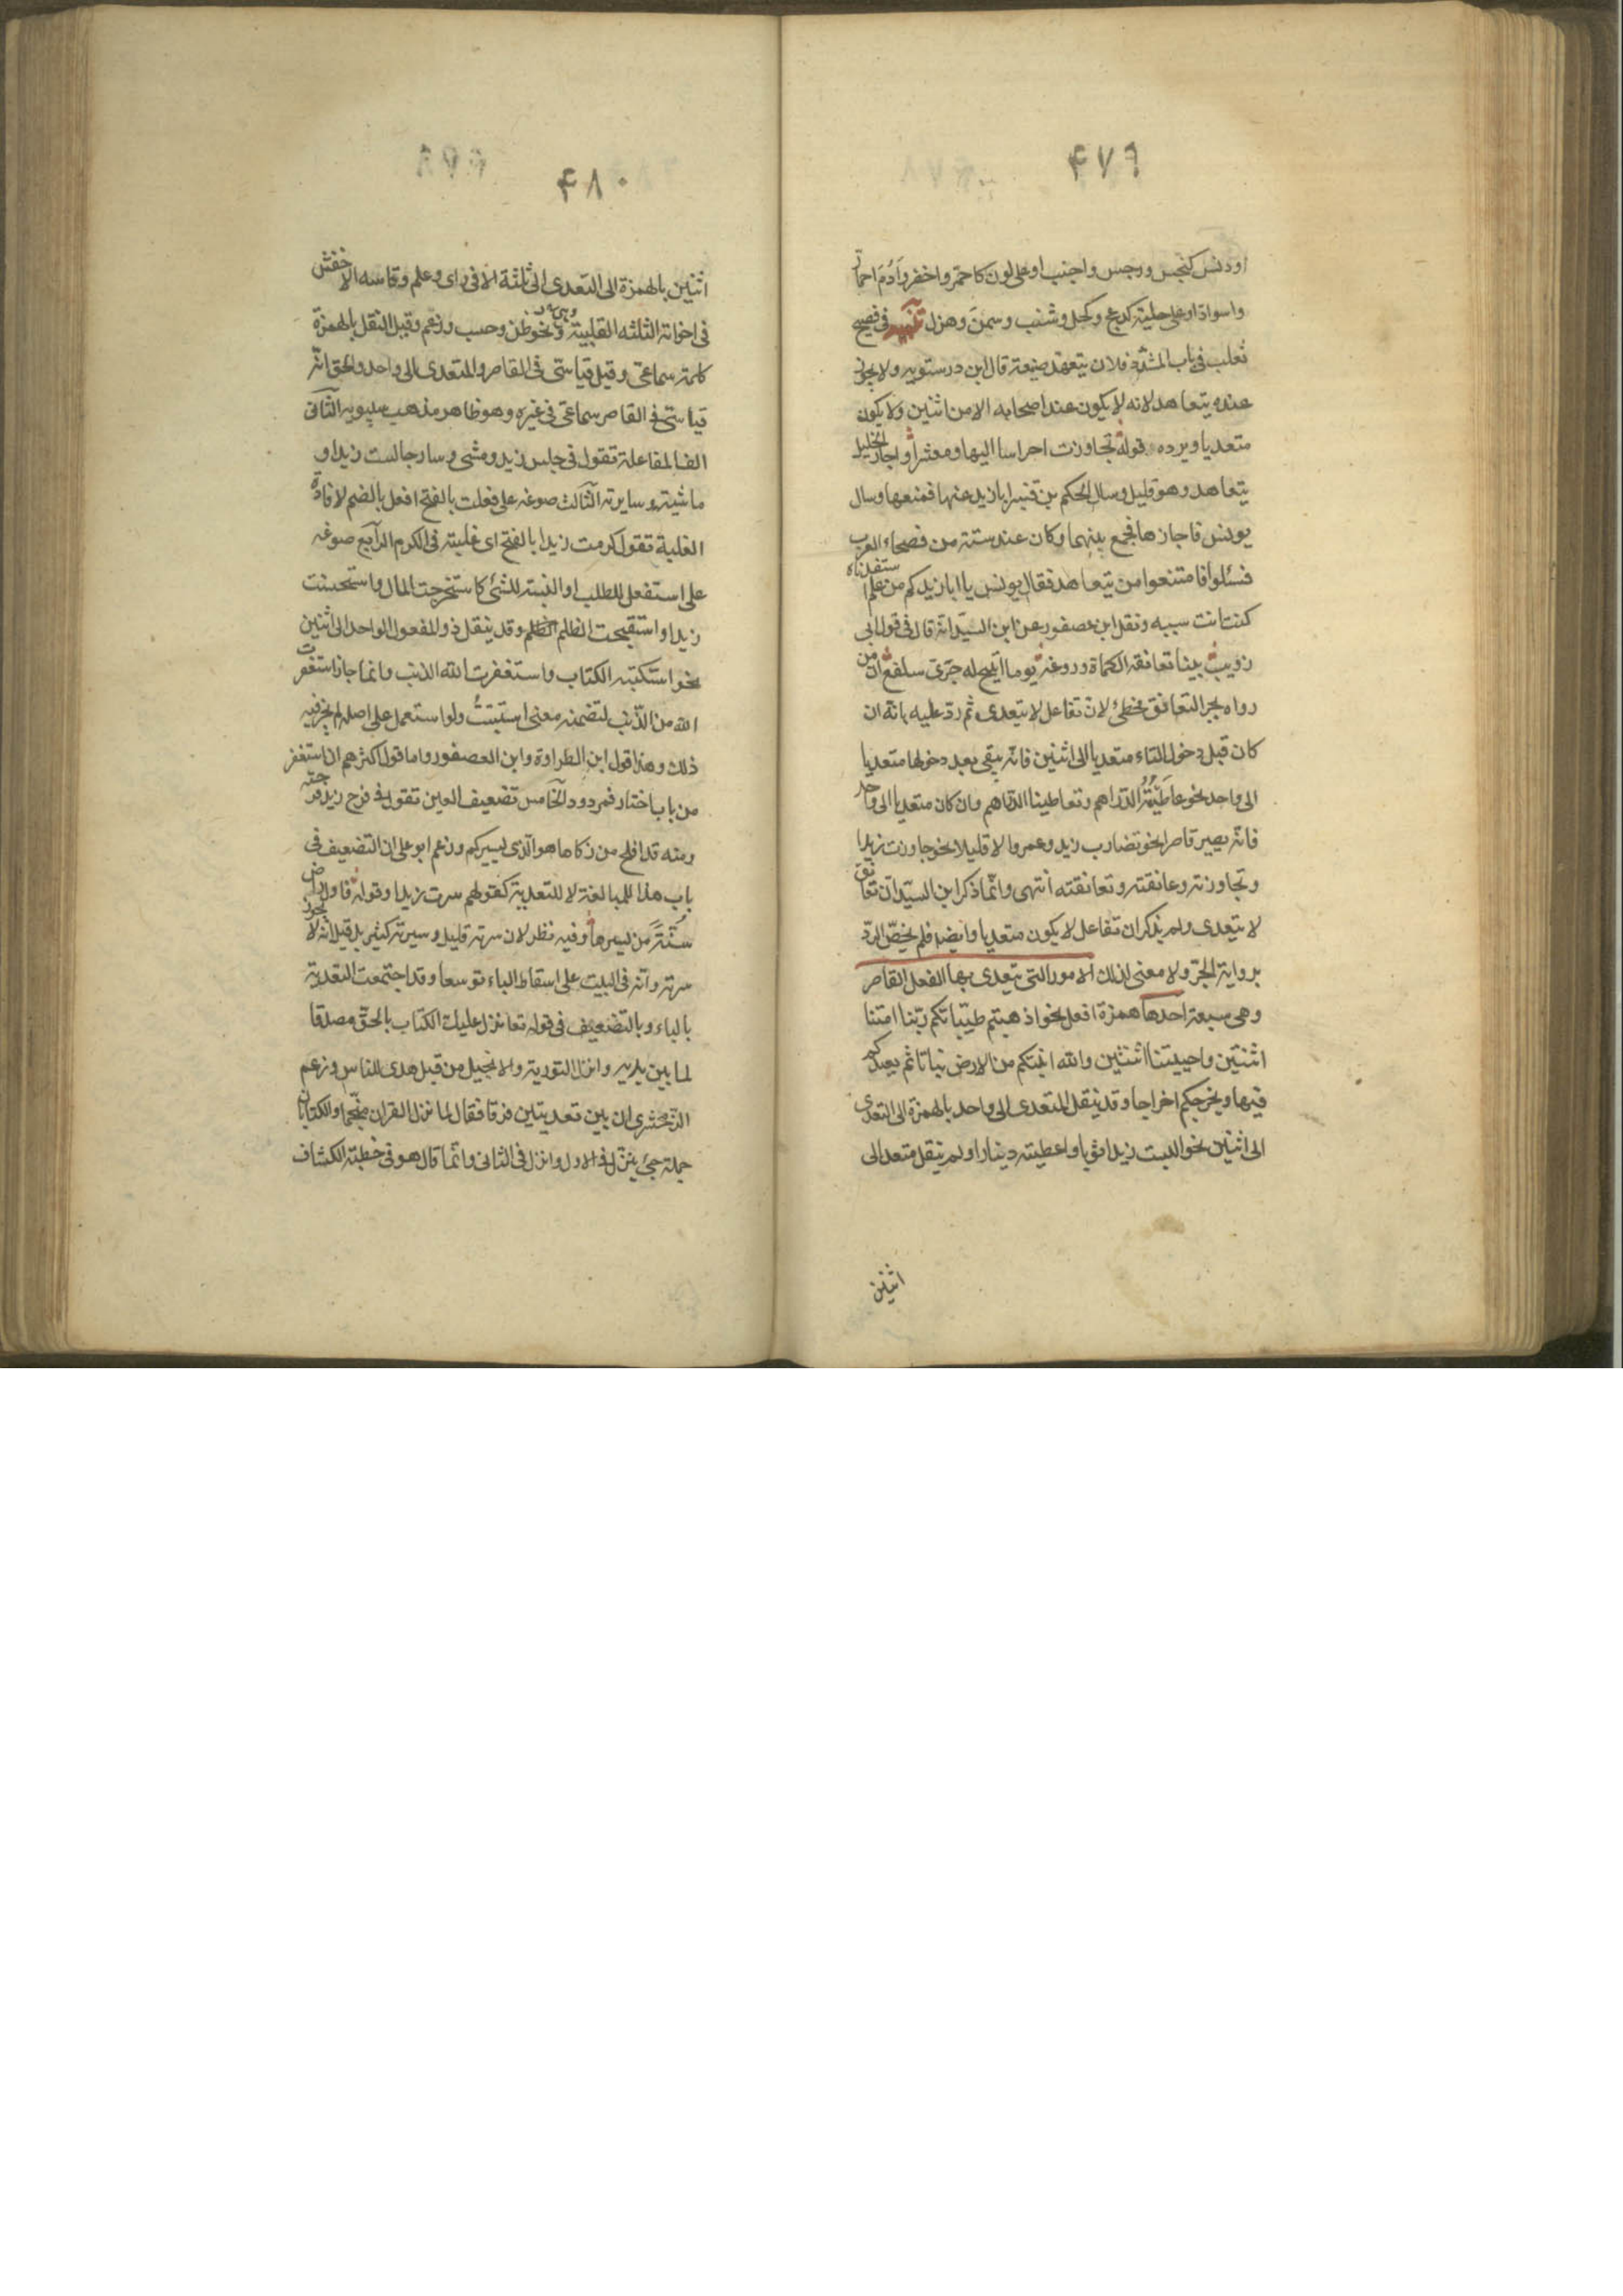 ۴۷۹
او دنس كنجس ورجس واجنب او على لون كاحمر واخضر وأدُم احمار
واسوادّ او على حلية كدعج وكحل وشنب وسمن وهزل تنبيه فى فصيح
ثعلب فى باب المشدّد فلان يتعهد ضيعته قال ابن درستويه ولا يجوز
عنده يتعاهد لانه لا يكون عند اصحابه الا من اثنين ولا يكون
متعديا ويرده قوله تجاوزت احراسا اليها ومعشرا واجاز الخليل
يتعاهد وهو قليل وسال الحكم بن قنبر ابا زيد عنها فمنعها وسال
يونس فاجازها فجمع بينهما وكان عنده ستة من فصحاء العرب
فسئلوا فامتنعوا من يتعاهد فقال يونس يا ابا زيد كم من علم استفدناه
كنت انت سببه ونقل ابن عصفور عن ابن السيّد انه قال فى قول ابى
ذويب بينا تعانقه الكماة وروغه يوما اتيح له جرىّ سلفع ان من
رواه بجر التعانق مخطئ لان تفاعل لا يتعدى ثم ردّ عليه بانه ان
كان قبل دخول التاء متعديا الى اثنين فانه يبقى بعد دخولها متعديا
الى واحد نحو عاطَيْتُهُ الدراهم وتعاطينا الدراهم وان كان متعديا الى واحد
فانه يصير قاصرا نحو تضارب زيد وعمرو الا قليلا نحو جاوزت زيدا
وتجاوزته وعانقته وتعانقته انتهى وانّما ذكر ابن السيّد ان تعانق
لا يتعدى ولم يذكر ان تفاعل لا يكون متعديا وايضا فلم يخصّ الردّ
برواية الجرّ ولا معنى لذلك الامور التى يتعدى بها الفعل القاصر
وهى سبعة احدها همزة افعل نحو اذهبتم طيّباتكم ربّنا امتنا
اثنتين واحييتنا اثنتين والله انبتكم من الارض نباتا ثم يعيدكم
فيها ويخرجكم اخراجا وقد ينقل المتعدى الى واحد بالهمزة الى التعدى
الى اثنين نحو البست زيدا ثوبا واعطيته دينارا ولم ينقل متعد الى
اثنين
۴۸۰
اثنين بالهمزة الى التعدى الى ثلثة الا فى راى وعلم وقاسه الاخفش
فى اخواته الثلثه القلبية نحو ظن وحسب وزعم وقيل النقل بالهمزة
كله سماعى وقيل قياسىّ فى القاصر والمتعدى الى واحد والحق انه
قياسىّ فى القاصر سماعىّ فى غيره وهو ظاهر مذهب سيبويه الثانى
الف المفاعلة تقول فى جلس زيد ومشى وسار جالست زيدا و
ماشيته وسايرته الثالث صوغه على فعلت بالفتح افعل بالضم لافادة
الغلبة تقول كرمت زيدا بالفتح اى غلبته فى الكرم الرابع صوغه
على استفعل للطلب او النسبة للشئ كاستخرجت المال واستحسنت
زيدا واستقبحت الظلم وقد ينقل ذو المفعول الواحد الى اثنين
نحو استكتبته الكتاب واستغفرت الله الذنب وانما جاز استغفرت
الله من الذّنب لتضمنه معنى استتبتُ ولو استعمل على اصله لم يجز فيه
ذلك وهذا قول ابن الطراوة وابن العصفور واما قول اكثرهم ان استغفر
من باب اختار فمردود الخامس تضعيف العين تقول فى فرح زيد فرّحته
ومنه قد افلح من زكاها هو الّذى يسيركم وزعم ابو على ان التضعيف فى
باب هذا للمبالغة لا للتعدية كقولهم سرت زيدا وقوله فاول راض
سُنّةً من يسيرها وفيه نظر لان سرته قليل وسيرته كثير بل قيل انه لا يجوز
سرته وانه فى البيت على اسقاط الباء توسعا وقد اجتمعت التعدية
بالباء وبالتضعيف فى قوله تعا نزل عليك الكتاب بالحقّ مصدقا
لما بين يديه وانزل التورية والانجيل من قبل هدى للناس وزعم
الزّمخشرى ان بين تعديتين فرقا فقال لما نزل القران منجّما والكتابان
جملة جئ بنزّل فى الاول وانزل فى الثانى وانّما قال هو فى خطبة الكشاف